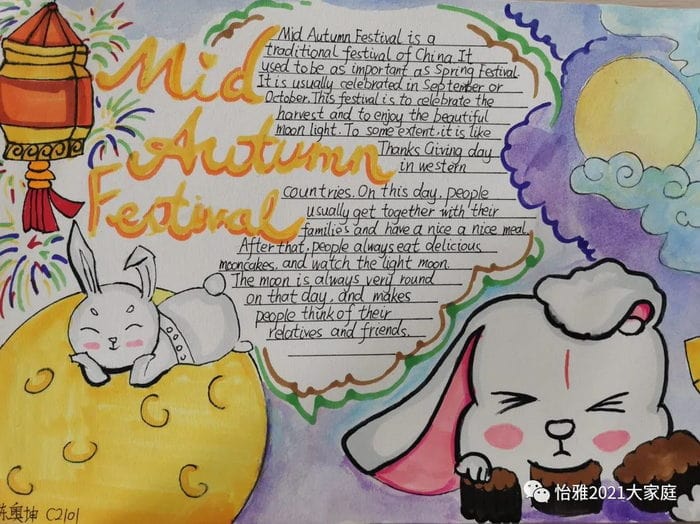 Mid
Autumn
Festival
Mid Autumn Festival is a
traditional festival of China.It
used to be as important as Spring Festival.
It is usually celebrated in September or
October.This festival is to celebrate the
harvest and to enjoy the beautiful
moon light. To some extent.it is like
Thanks Giving day
in western
countries. On this day, people
usually get together with their
families and have a nice a nice meal.
After that, people always eat delicious
mooncakes, and watch the light moon.
The moon is always very round
on that day, and makes
people think of their
relatives and friends.
陈奥坤 C2101
怡雅2021大家庭